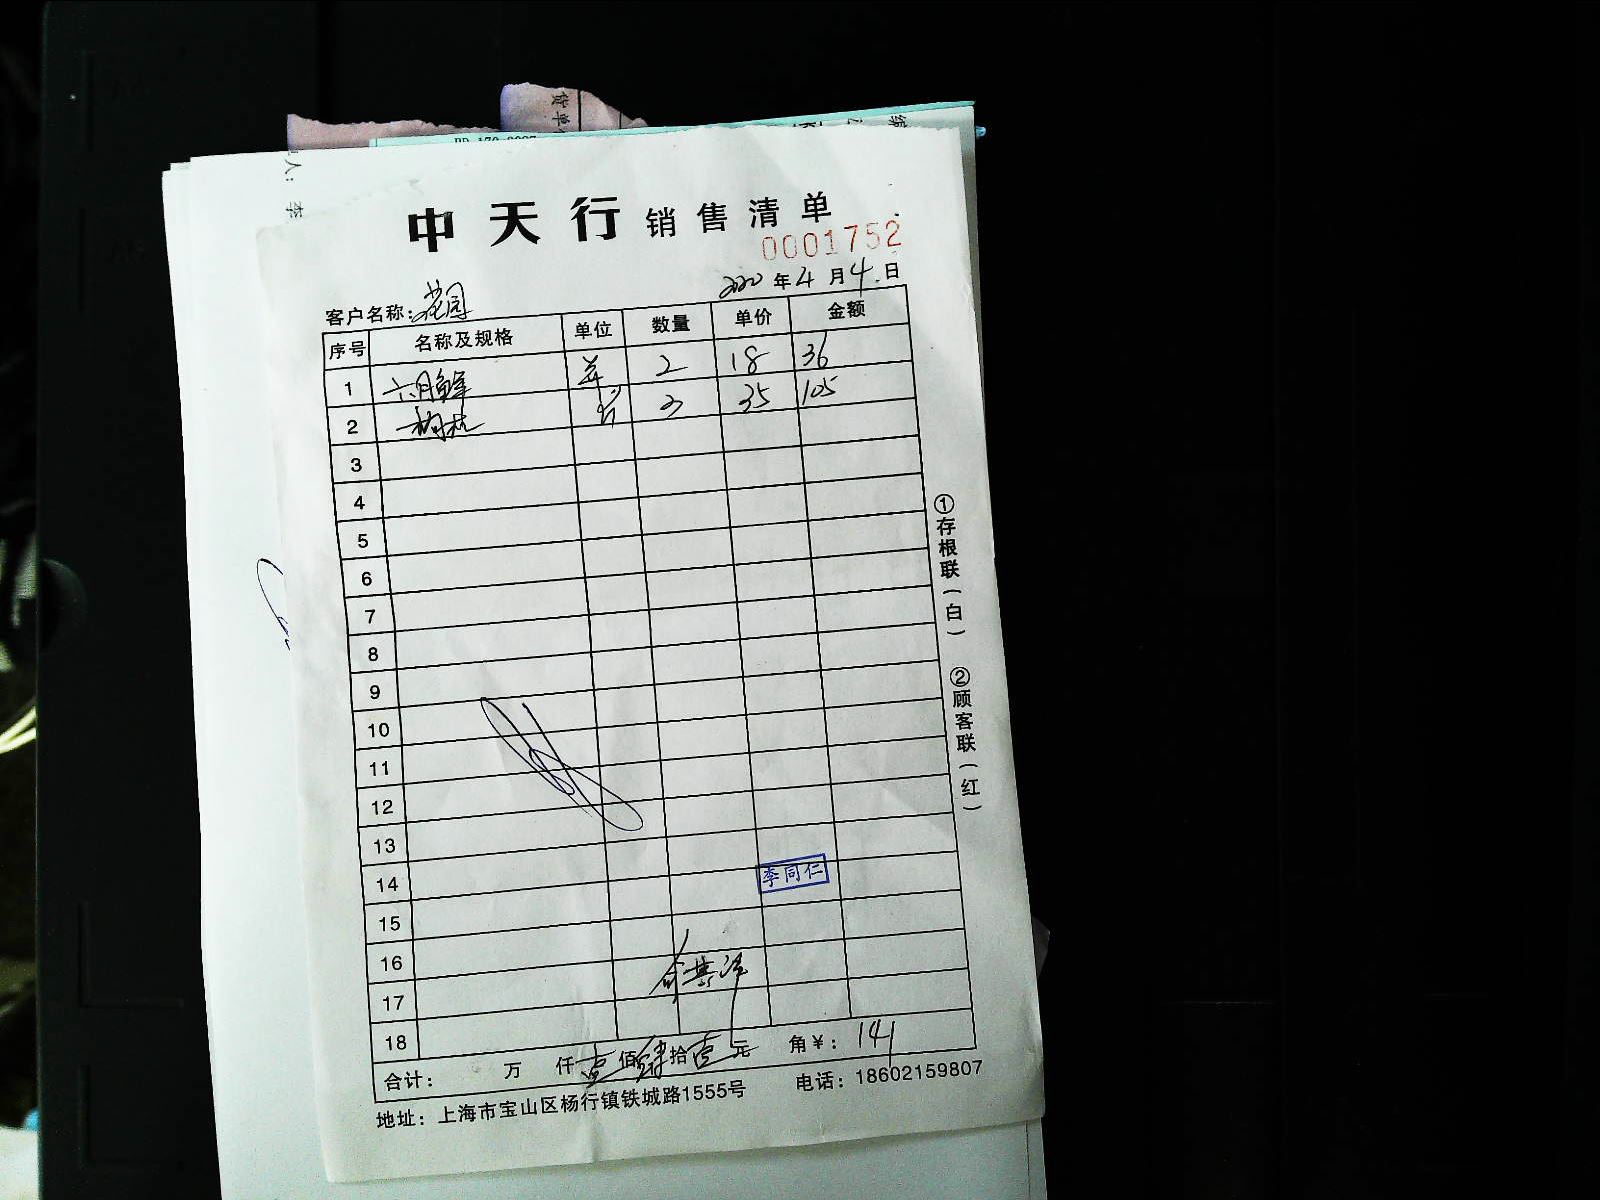 货单
中天行 销售清单
0001752
客户名称: 花园
2020 年 4 月 4 日
序号 名称及规格 单位 数量 单价 金额
1 六月鲜 2 18 36
2 3 35 105
3
4
5
6
7
8
9
10
11
12
13
14 李同仁
15
16
17
18
合计: 万 仟 壹 佰 肆 拾 壹 元 角 ¥: 141
地址: 上海市宝山区杨行镇铁城路1555号 电话: 18602159807
①存根联(白) ②顾客联(红)
人: 李